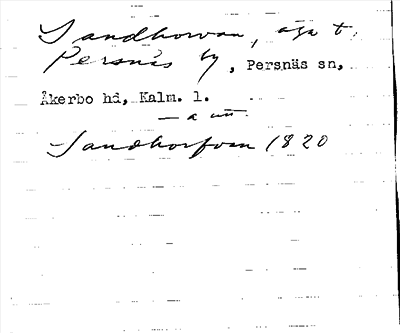 Sandhorvan, äga t.
Persnäs by, Persnäs sn,
Åkerbo hd, Kalm. l.
Sandhorfvan 1820